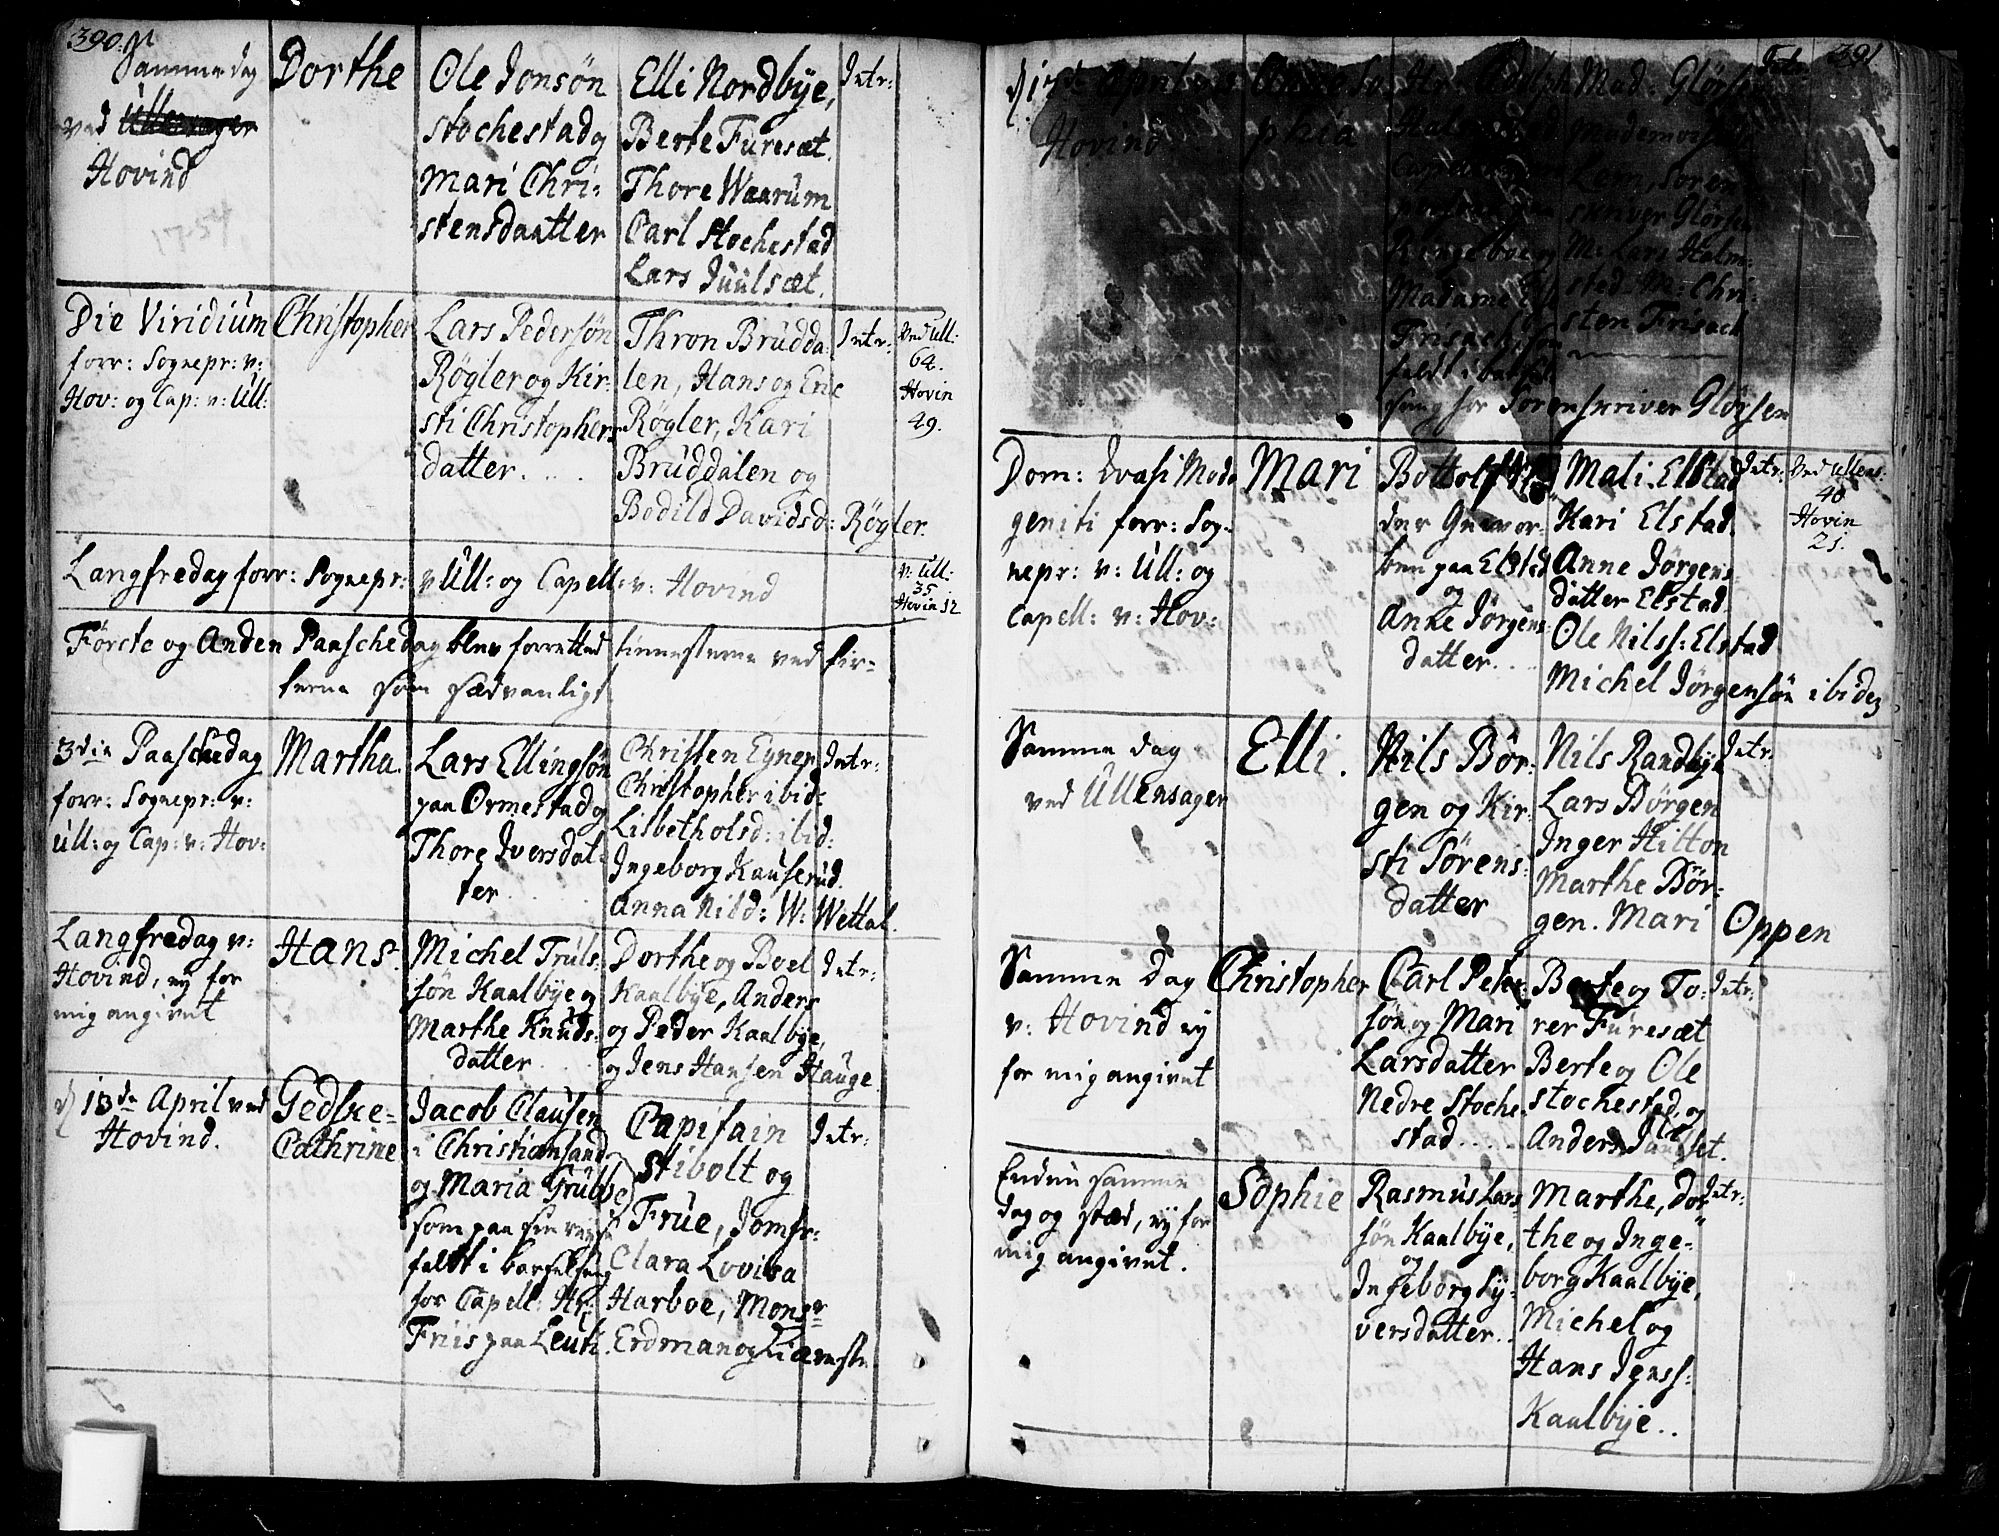 390.
Samme dag
ved Ullensager
Hovind
1754
Dorthe
Ole Jonsøn
Stochestad og
Mari Chri-
stensdaatter
Elli Nordbye,
Berte Furesæt.
Thore Waarum
Carl Stochestad
Lars Juulsæt.
Intr:
Die Viridium
forr: Sognepr: v:
Hov: og Cap: v: Ull:
Christopher
Lars Pedersøn
Røgler og Kir-
sti Christophers
datter....
Thron Brudda-
len, Hans og Eric
Røgler, Kari
Bruddalen og
Bodild Davidsd: Røgler.
Intr:
Ved Ull:
64.
Hovin
49.
Langfredag forr: Sognepr: v Ull: og Capell: v: Hovind
v: Ull:
35
Hovin 12
Første og Anden Paaschedag blev forrettet tienesterne ved Kir-
kerne som sædvanligt
3die Paaschedag
forr: Sognepr: v:
Ull: og Cap: v: Hov:
Martha.
Lars Ellingsøn
paa Ormestad og
Thore Iversdat-
ter
Christen Eyner
Christopher ibid:
Lisbet holsd: ibid:
Ingeborg Kauserud.
Anna Nilsd: W: Wettal.
Intr:
Langfredag v:
Hovind, ey for
mig angivet
Hans.
Michel Truls-
søn Kaalbye og
Marthe Knuds-
datter
Dorthe og Boel
Kaalbye, Anders
og Peder Kaalbye,
og Jens Hansen Hauge
Intr:
d 18de April ved
Hovind.
Gedske-
Cathrine
Jacob Clausen
i Christiansand
og Maria Grubbe
som paa sin reyse
faldt i barselseng
for Capell: Hr:
Friis paa Leuti.
Capitain
Stibolt og
Frue, Jomfr:
Clara Lovisa
Harboe, Monsr
Erdman og Liamstr
Intr:
391
d 17de April
Hovind
Mad: Glørsen
Intr:
Lem, Soren-
skriver Glørsen
M: Lars Halm-
sted M: Chri-
sten Frisach
Madame
Frisach som
faldt i barsel
seng hos Sorenskriver Glørsen
Dom: Qvasi Modo
geniti forr: Sog-
nepr: v: Ull: og
Capell: v: Hov:
Mari
Bottolf
paa Elstad
og
Anne Jørgens-
datter...
Mali Elstad
Kari Elstad.
Anne Jørgens-
datter Elstad.
Ole Nilss: Elstad
Michel Jørgensøn ibidem
Intr:
Ved Ullens:
40
Hovin
21.
Samme dag
ved Ullensager
Elli.
Nils Bør-
gen og Kir-
sti Sørens-
datter
Nils Randbye
Lars Børgen
Inger Hilton
Marthe Bør-
gen. Mari Oppen
Intr:
Samme Dag
v: Hovind ey
for mig angivet
Christopher
Carl Peder-
søn og Mari
Larsdatter
Nedre Stoche-
stad.....
Berte og To-
rer Furesæt
Berte og Ole
Stochestad, og
Anders Juulset.
Intr:
Endnu samme
dag og stæd, ey for
mig angivet.
Sophie
Rasmus Lars
søn Kaalbye,
og
Ingeborg Sy-
versdatter..
Marthe, Dor-
the og Inge-
borg Kaalbye,
Michel og
Hans Jenss:
Kaalbye..
Intr: